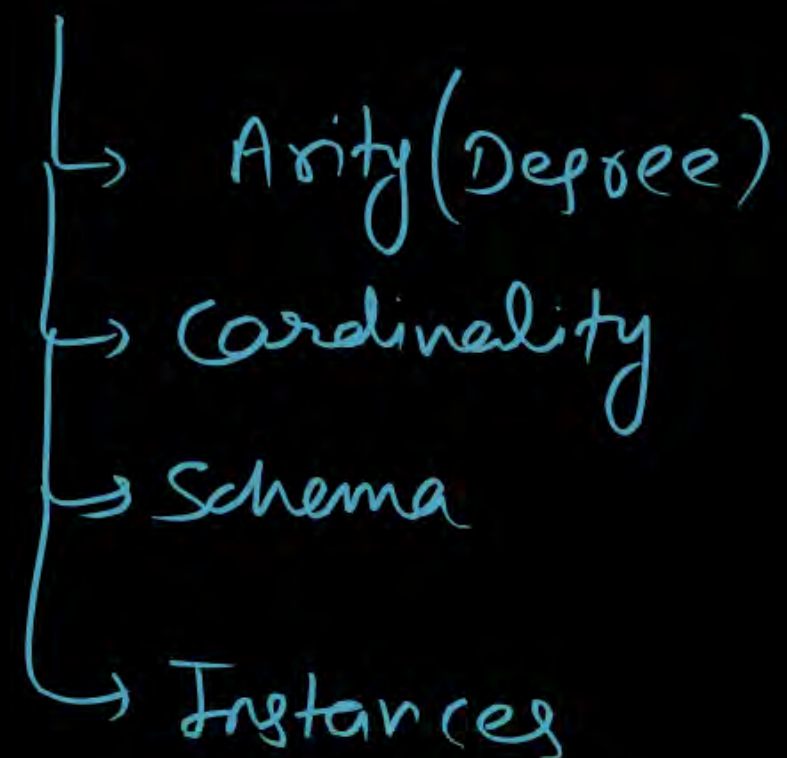 → Arity (Degree)
→ Cardinality
→ Schema
→ Instances